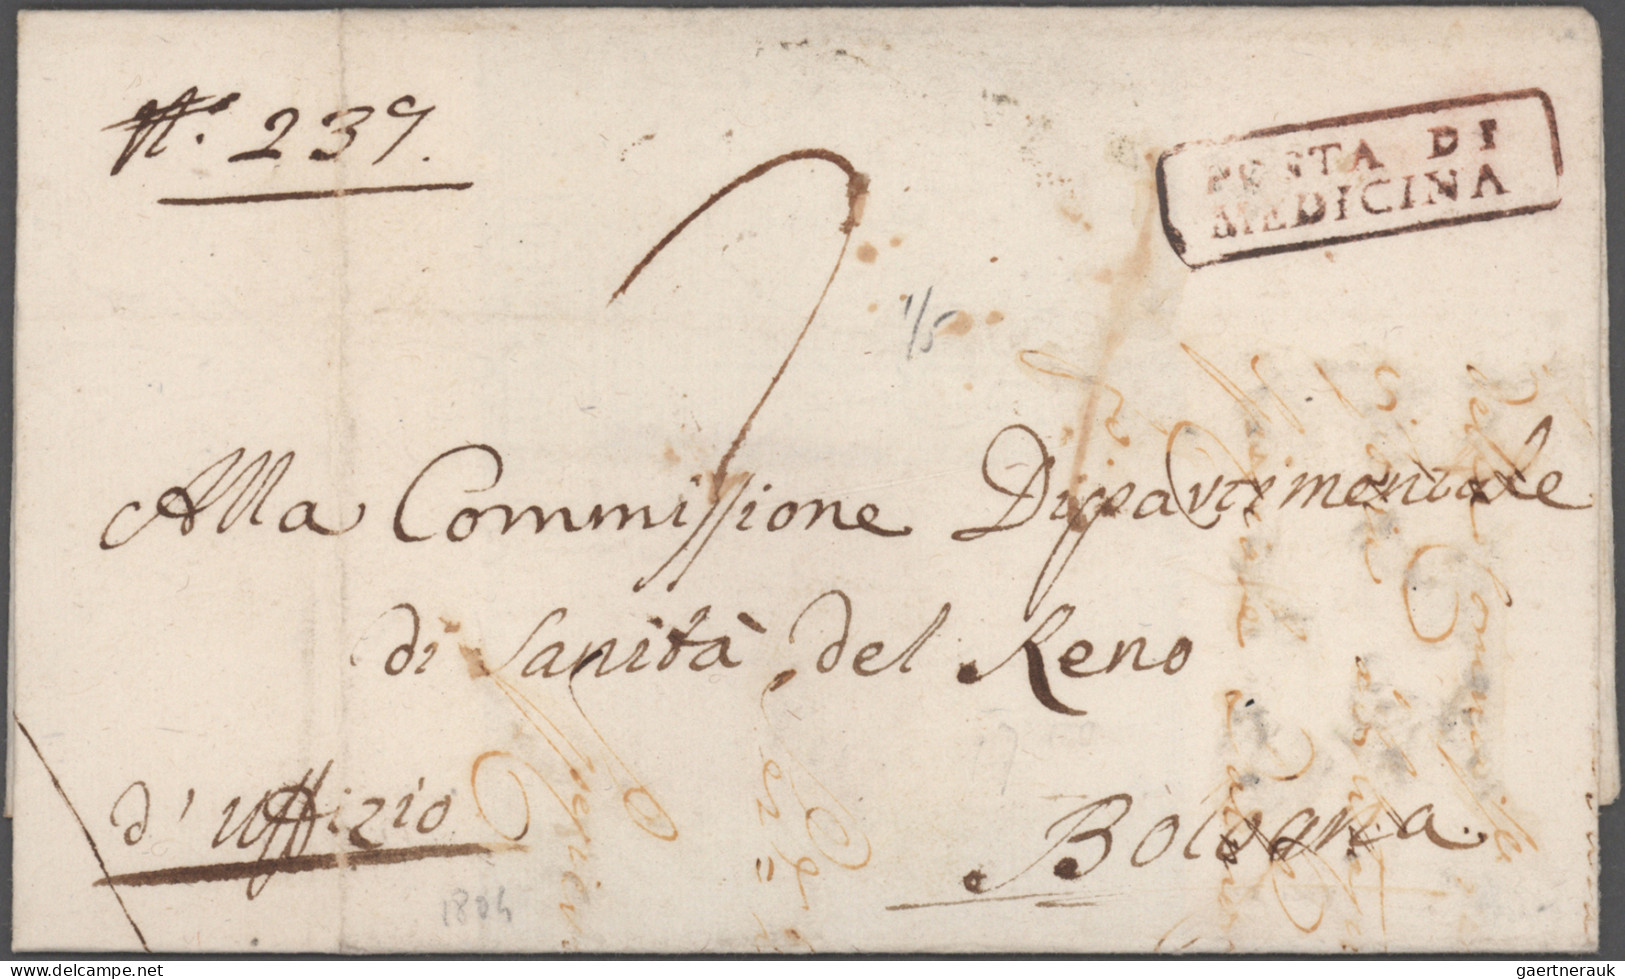 N.° 239.
POSTA DI
MEDICINA
1/5
Alla Commissione Dipartimentale
di Sanità del Reno
d'Uffizio
Bologna.
1804
gaertnerauk